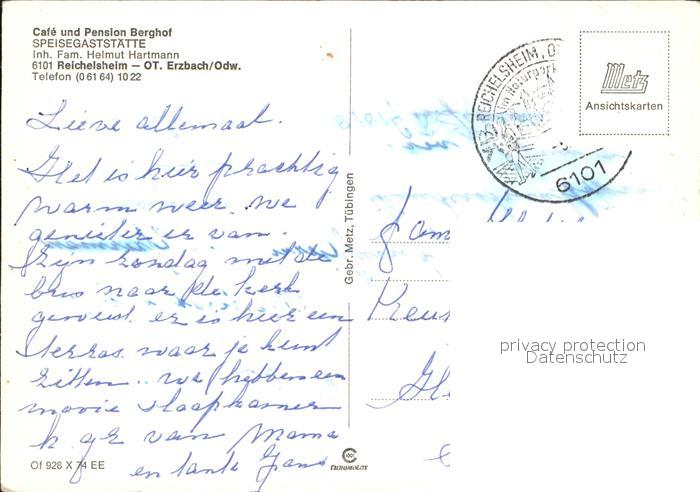 Café und Pension Berghof
SPEISEGASTSTÄTTE
Inh. Fam. Helmut Hartmann
6101 Reichelsheim — OT. Erzbach/Odw.
Telefon (0 61 64) 10 22
Lieve allemaal.
Het is hier prachtig
warm weer. we
genieten er van.
Zijn zondag met de
bus naar de kerk
geweest. er is hier een
terras waar je kunt
zitten. we hebben een
mooie slaapkamer
h gr van Mama
en tante Jans
Of 928 X 74 EE
Gebr. Metz, Tübingen
REICHELSHEIM, O
6101
Metz
Ansichtskarten
Fam
privacy protection
Datenschutz